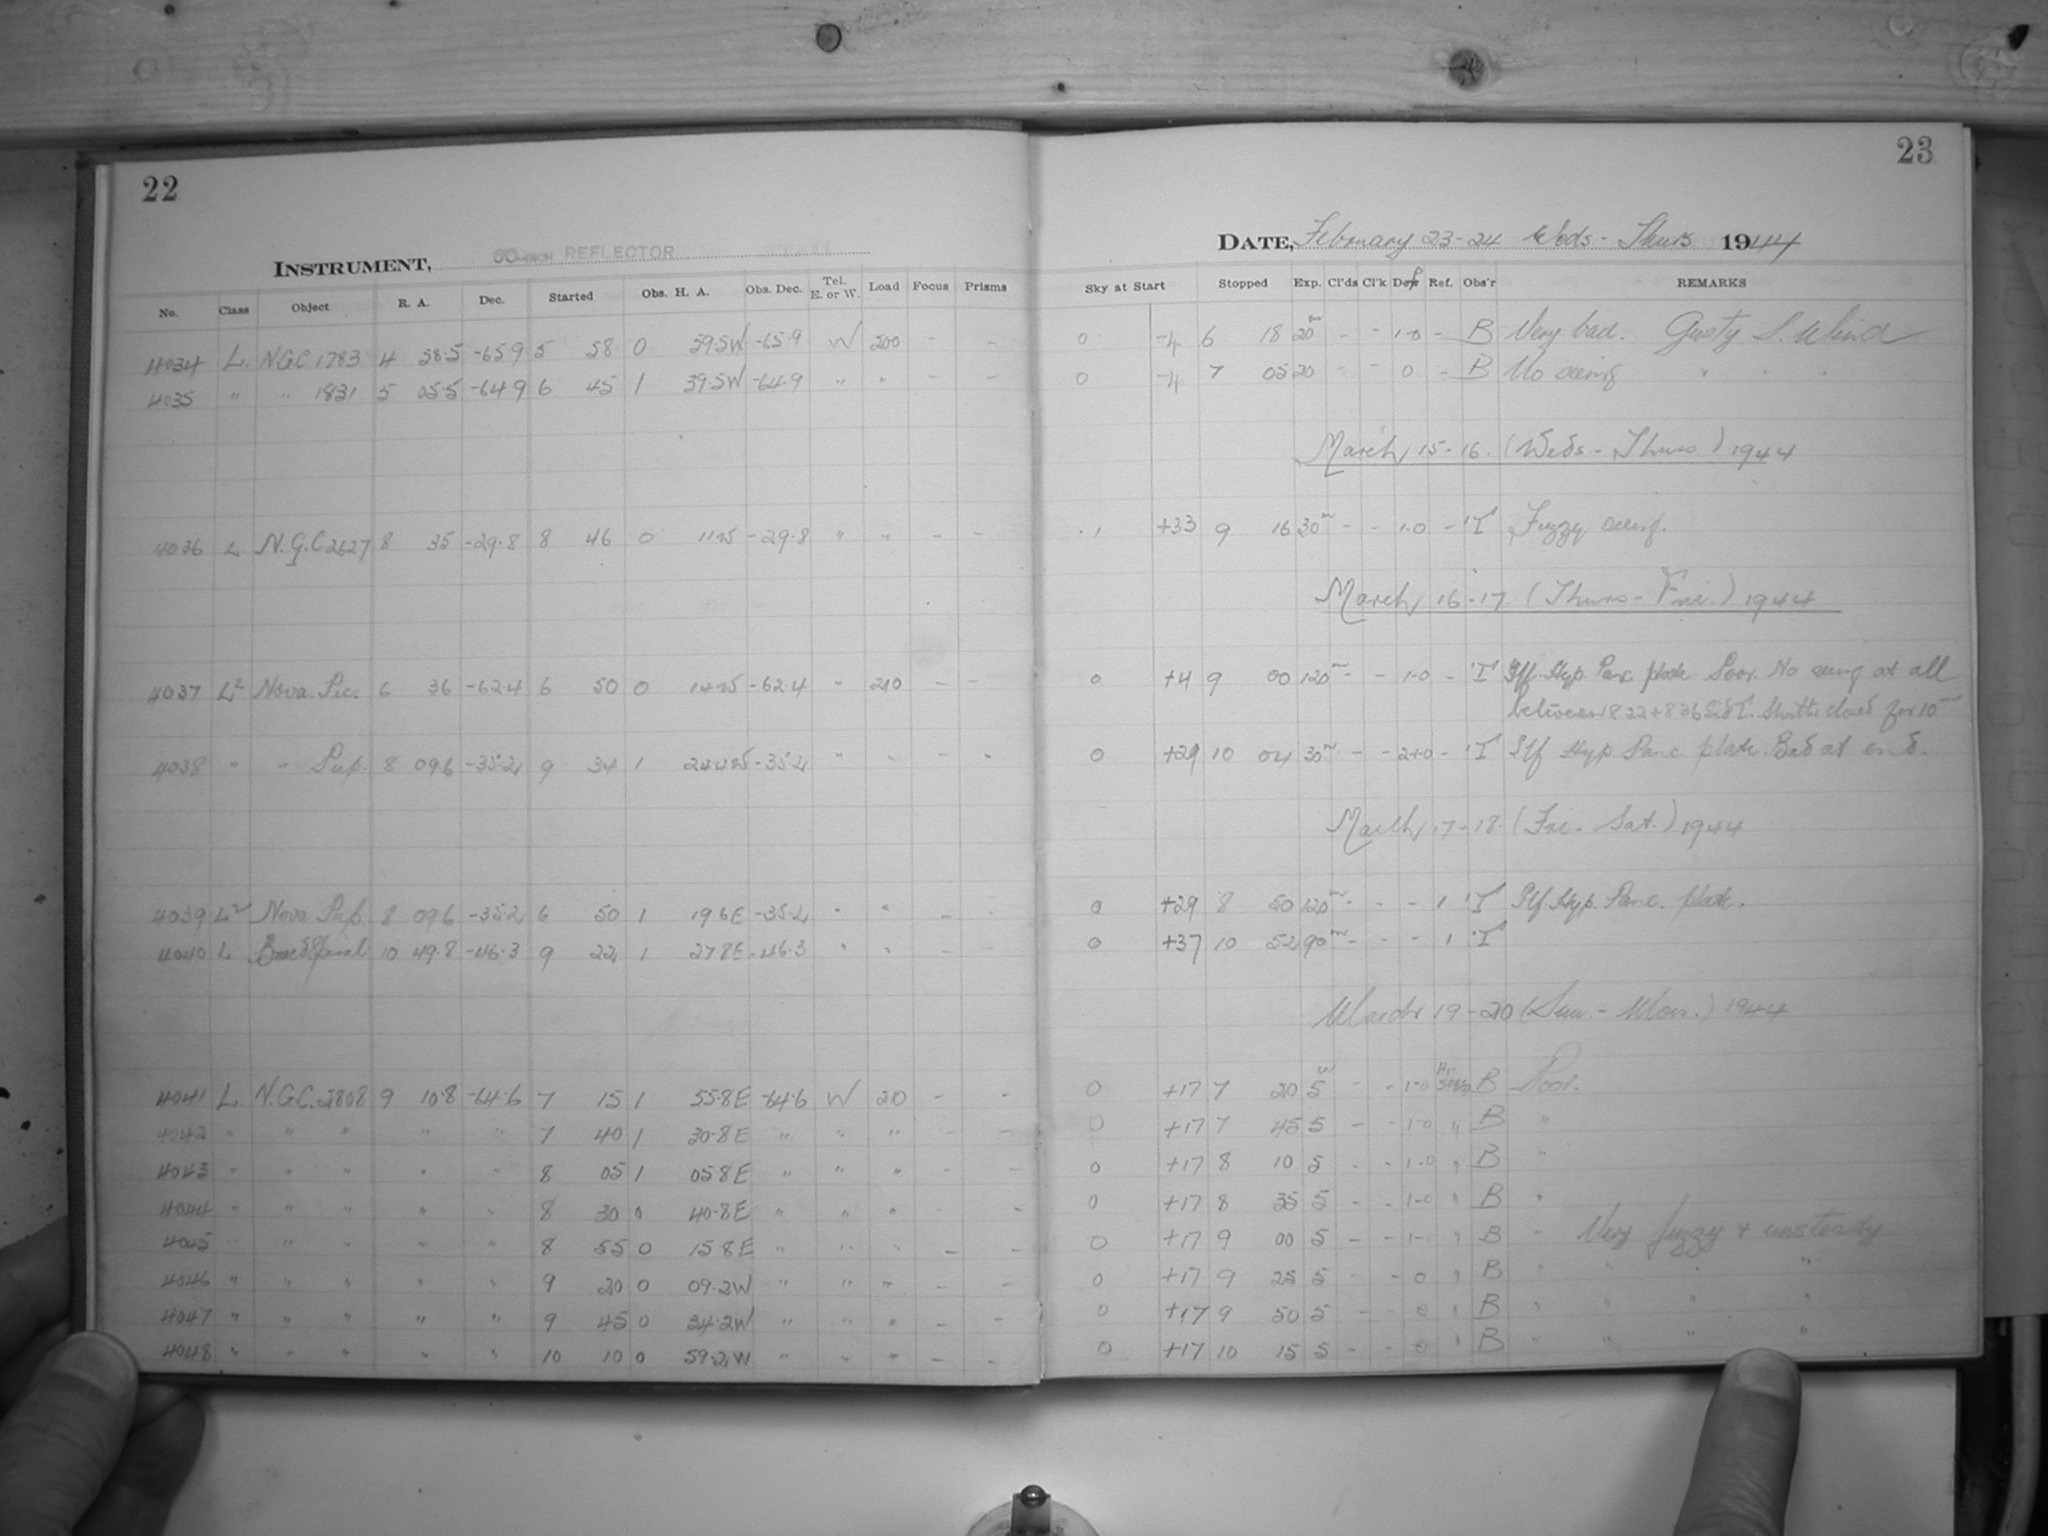 22
INSTRUMENT, 60-INCH REFLECTOR
No. Class Object R. A. Dec. Started Obs. H. A. Obs. Dec. Tel. E. or W. Load Focus Prisms
4034 L. NGC 1783 4 58.5 -65.9 5 58 0 59.5W -65.9 W 200 - -
4035 " " 1831 5 05.5 -64.9 6 45 1 39.5W -64.9 " " - -
4036 L N.G.C 2627 8 35 -29.8 8 46 0 11W -29.8 " " - -
4037 L² Nova Pic. 6 36 -62.4 6 50 0 14W -62.4 " 210 - -
4038 " " Pup. 8 09.6 -35.2 9 34 1 24.4W -35.2 " - - -
4039 L² Nova Pup. 8 09.6 -35.2 6 50 1 19.6E -35.2 " " - -
4040 L Barred Spiral 10 49.8 -46.3 9 22 1 27.8E -46.3 " " - -
4041 L. N.G.C. 2808 9 10.8 -64.6 7 15 1 55.8E -64.6 W 210 - -
4042 " " " " " 7 40 1 30.8E " " " - -
4043 " " " " " 8 05 1 05.8E " " " - -
4044 " " " " " 8 30 0 40.8E " " " - -
4045 " " " " " 8 55 0 15.8E " " " - -
4046 " " " " " 9 20 0 09.2W " " " - -
4047 " " " " " 9 45 0 34.2W " " " - -
4048 " " " " " 10 10 0 59.2W " " " - -
23
DATE, February 23-24 Weds - Thurs 1944
Sky at Start Stopped Exp. Cl'ds Cl'k Def Ref. Obs'r REMARKS
0 -4 6 18 20m - - 1-0 - B Very bad. Gusty S. Wind
0 -4 7 05 20 - - 0 - B No seeing " " "
March 15-16. (Weds - Thurs) 1944
.1 +33 9 16 30m - - 1-0 - 'T' Fuzzy seeing.
March 16-17 (Thurs - Fri.) 1944
0 +4 9 00 120m - - 1-0 - 'T' Ilf. Hyp. Panc plate. Poor. No seeing at all
between 8 22 + 8 36 Sid T. Shutter closed for 10m
0 +29 10 04 30m - - 2+0 - 'T' Ilf Hyp Panc plate. Bad at end.
March 17-18. (Fri - Sat.) 1944
0 +29 8 50 120m - - - 1 'T' Ilf. Hyp. Panc. plate.
0 +37 10 52 90m - - - 1 'T'
March 19-20 (Sun. - Mon.) 1944
0 +17 7 20 5m - - 1-0 B Poor.
0 +17 7 45 5 - - 1-0 " B "
0 +17 8 10 5 - - 1-0 " B "
0 +17 8 35 5 - - 1-0 " B "
0 +17 9 00 5 - - 1- " B " Very fuzzy + unsteady
0 +17 9 25 5 - - 0 " B " " " "
0 +17 9 50 5 - - 0 " B " " " "
0 +17 10 15 5 - - 0 " B " " " "